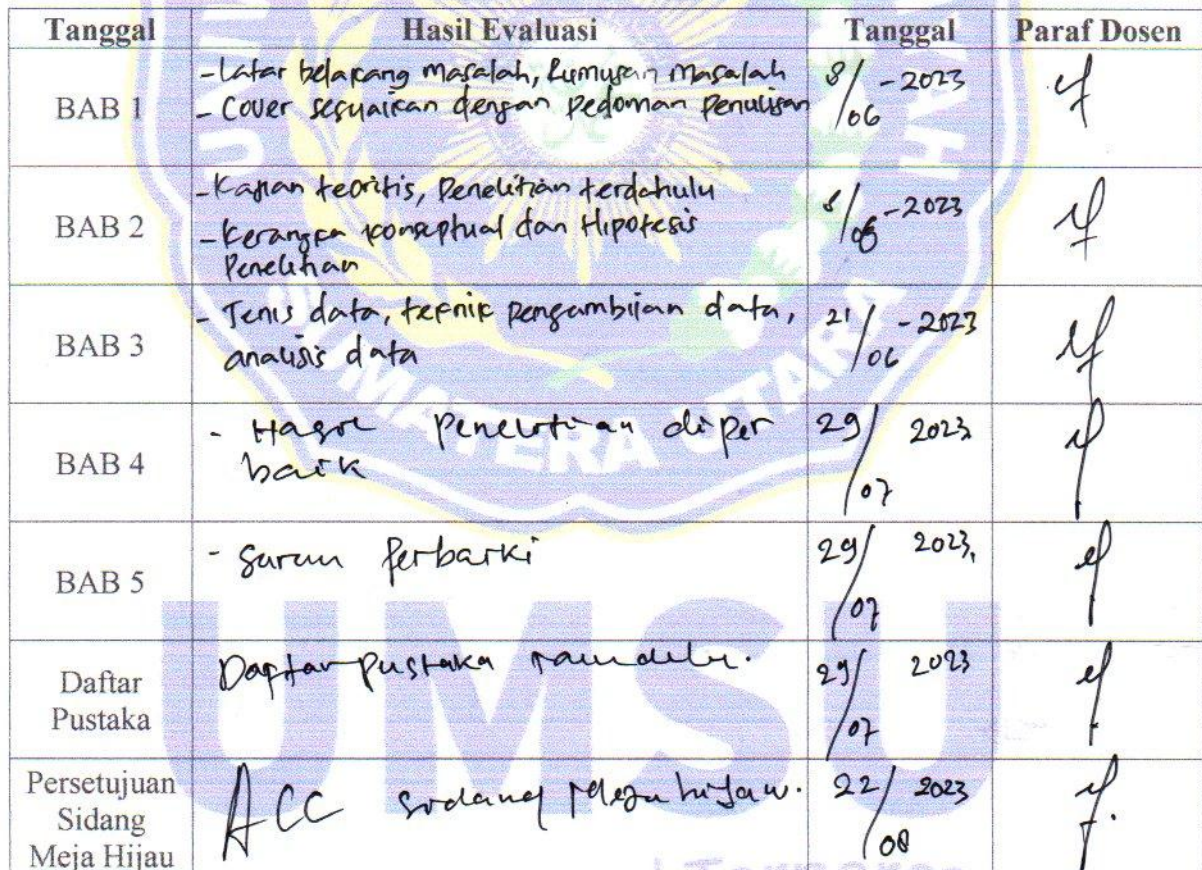 Tanggal Hasil Evaluasi Tanggal Paraf Dosen
BAB 1
- Latar belakang masalah, Rumusan masalah
- Cover sesuaikan dengan pedoman penulisan
8/06 - 2023
BAB 2
- Kajian teoritis, Penelitian terdahulu
- Kerangka konseptual dan Hipotesis
Penelitian
8/06 - 2023
BAB 3
- Jenis data, teknik pengambilan data,
analisis data
21/06 - 2023
BAB 4
- Hasil Penelitian diper
baik
29/07 2023
BAB 5
- Saran Perbaiki
29/07 2023
Daftar
Pustaka
Daftar Pustaka
29/07 2023
Persetujuan
Sidang
Meja Hijau
ACC sidang Meja hijau.
22/08 2023
SUMATERA UTARA
UMSU